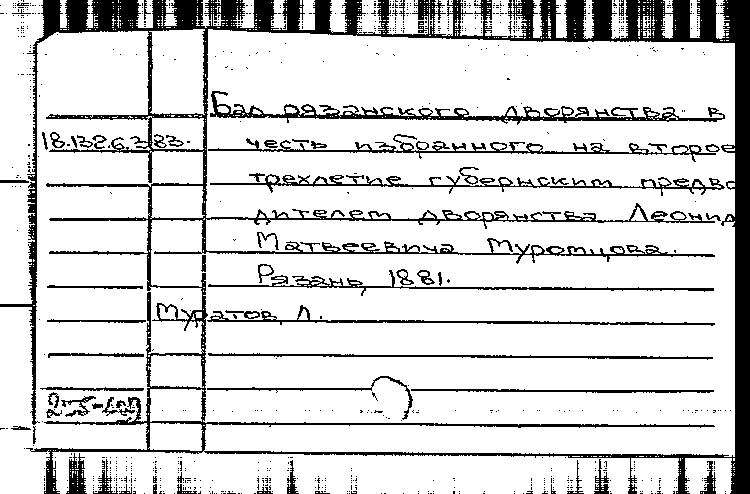 Бал рязанского дворянства в
18.132.6.383. честь избранного на второе
трехлетие губернским предво
дителем дворянства Леонид
Матвеевича Муромцова.
Рязань, 1881.
Муратов, Л.